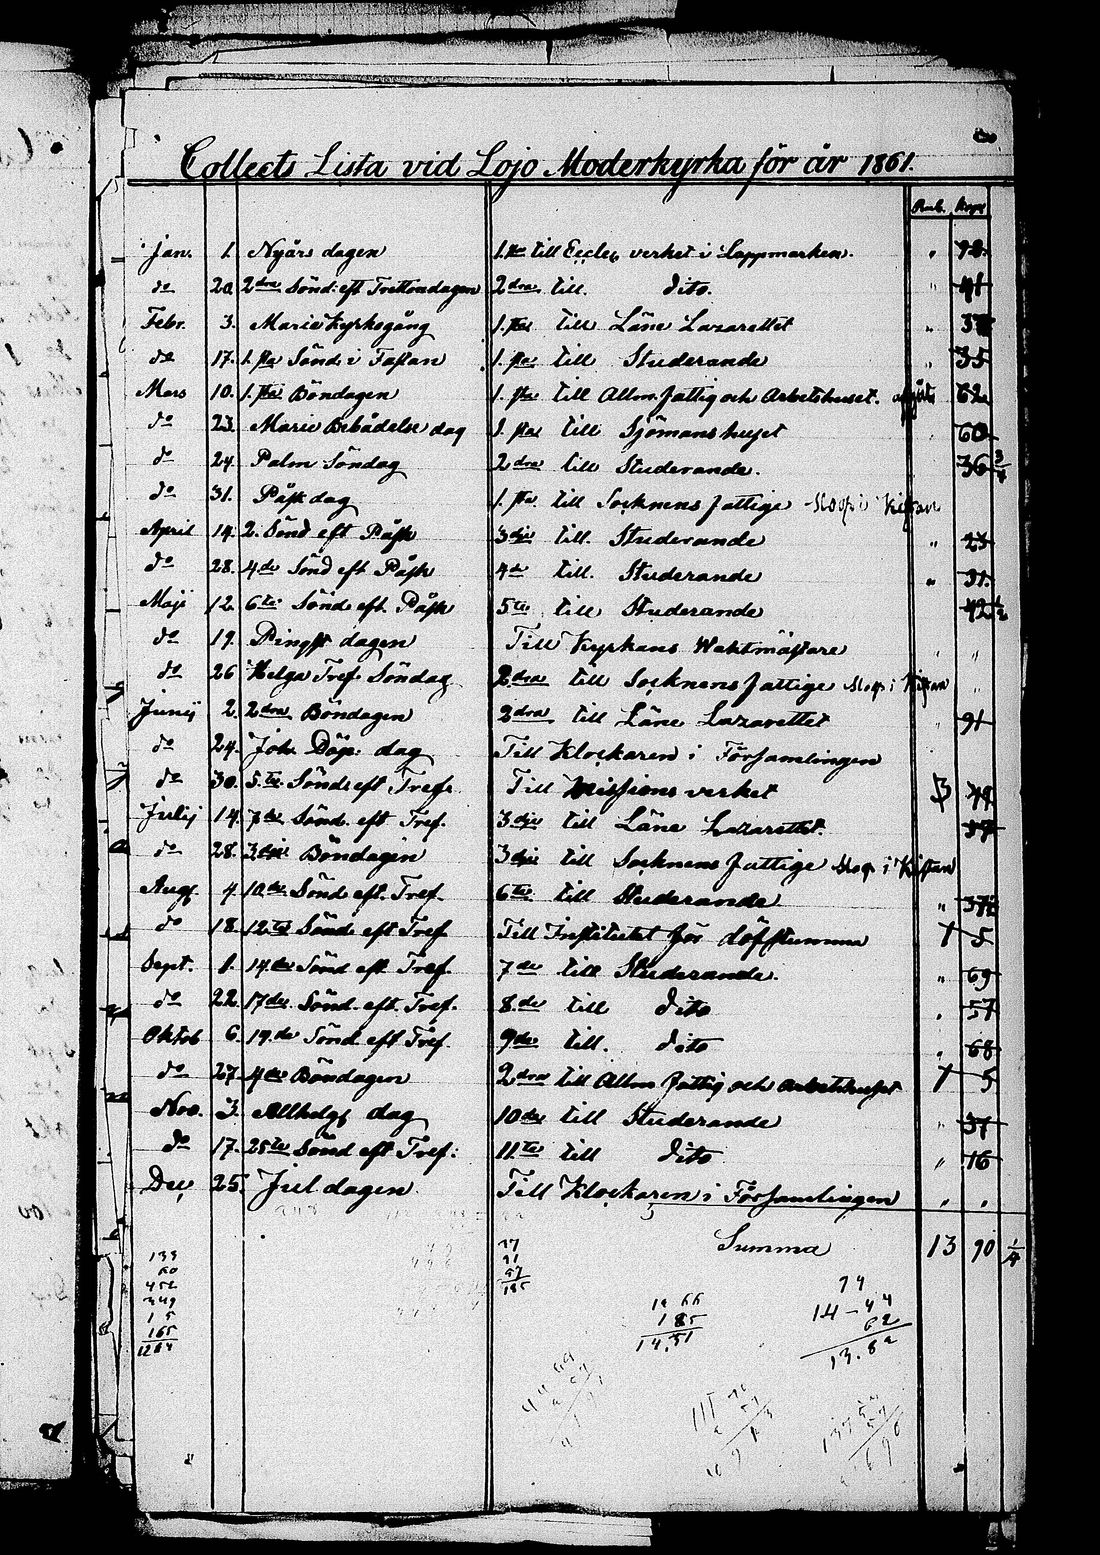 Collects Lista vid Lojo Moderkyrka för år 1861.
Rub. Kop.
Jan. 1. Nyårs dagen 1.sta till Eccles. verket i Lappmarken. "
do 20. 2dra Sönd. eft Trettondagen 2dra till dito. " 41
Febr. 3. Mariæ Kyrkogång 1.sta till Läns Lazarettet "
do 17. 1.sta Sönd. i Fastan 1.sta till Studerande " 35
Mars 10. 1.sta Böndagen 1.sta till Allm. fattig och Arbetshuset. 62
do 25. Mariæ Bebådelse dag 1.sta till Sjömanshuset " 60
do 24. Palm Söndag 2dra till Studerande. 36 3/4
do 31. Påsk dag 1.sta till Socknens fattige i Kistan
April 14. 2. Sönd eft Påsk 3dje till Studerande " 23
do 28. 4de Sönd eft Påsk 4de till. Studerande " 31.
Maji 12. 6te Sönd eft. Påsk 5te till Studerande 42 1/2
do 19. Pingst dagen Till Kyrkans Waktmästare " "
do 26 Helga Tref. Söndag 2.dra till Socknens fattige i Kistan "
Junij 2. 2dra Böndagen 2dra till Läns Lazarettet " 91
do 24. Joh. Döp. dag Till Klockaren i Församlingen
do 30. 5.te Sönd. eft Tref. Till Missions verket 3 49
Julij 14. 7de Sönd. eft Tref. 3dje till Läns Lazarettet. 57
do 28. 3dje Böndagen 3dje till Socknens fattige i Kistan
Aug. 4. 10.de Sönd eft. Tref. 6te till Studerande "
do 18. 12te Sönd eft Tref Till Institutet för döfstumma 1 5
Sept. 1. 14de Sönd eft Tref. 7de till Studerande. " 69
do 22. 17de Sönd. eft. Tref. 8de till dito " 57
Oktob 6. 19.de Sönd. eft Tref. 9de till. dito " 68
do 27. 4de Böndagen 2dra till Allm. fattig och Arbetshuset 1 5
Nov. 3. Allhelg. dag 10de till Studerande " 37
do 17. 25te Sönd eft Tref. 11te till dito " 16
Dec. 25. Jul dagen Till Klockaren i Församlingen " "
Summa 13 90 1/4
452
349
165
57
91
185
14.51
14-44
62
13.82